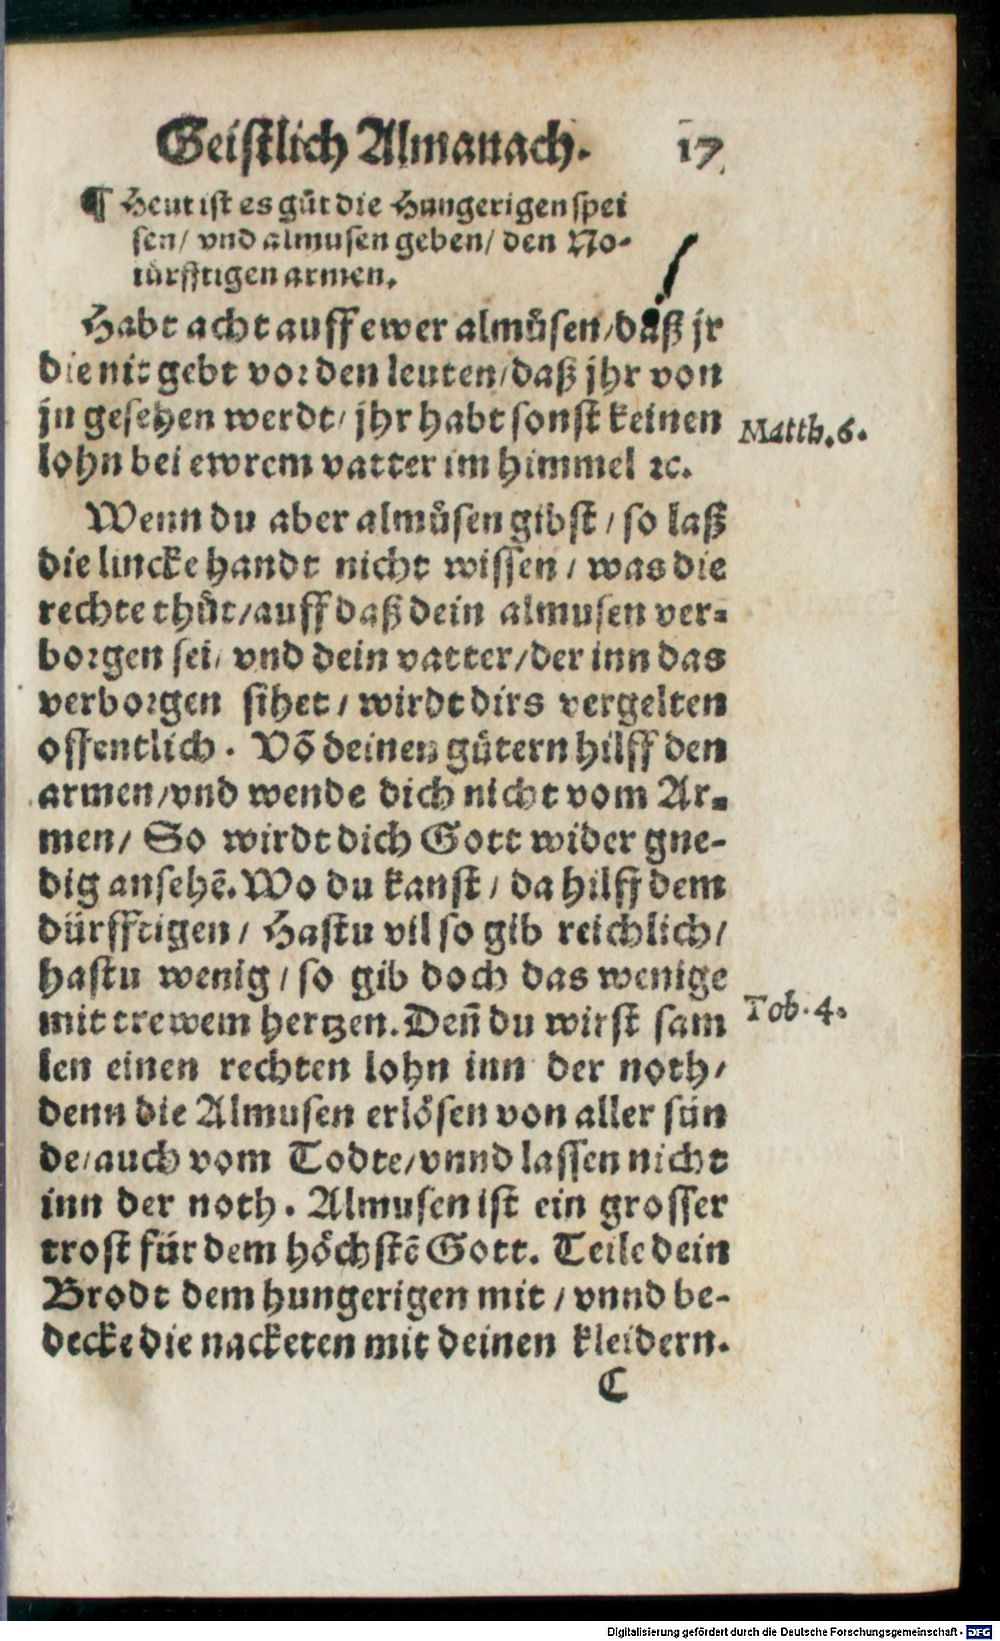 Geistlich Almanach. 17
¶ Heut ist es gůt die Hungerigen spei
sen/ vnd almusen geben/ den No-
türfftigen armen.
Habt acht auff ewer almůsen/daß jr
die nit gebt vor den leuten/daß jhr von
jn gesehen werdt/ jhr habt sonst keinen
lohn bei ewrem vatter im himmel ꝛc.
Matth.6.
Wenn du aber almůsen gibst/ so laß
die lincke handt nicht wissen/ was die
rechte thůt/auff daß dein almusen ver-
borgen sei/ vnd dein vatter/der inn das
verborgen sihet/ wirdt dirs vergelten
offentlich. Võ deinen gütern hilff den
armen/vnd wende dich nicht vom Ar-
men/ So wirdt dich Gott wider gne-
dig ansehẽ. Wo du kanst/ da hilff dem
dürfftigen/ Hastu vil so gib reichlich/
hastu wenig/ so gib doch das wenige
mit trewem hertzen. Den̄ du wirst sam
Tob.4.
len einen rechten lohn inn der noth/
denn die Almusen erlösen von aller sün
de/auch vom Todte/vnnd lassen nicht
inn der noth. Almusen ist ein grosser
trost für dem höchstẽ Gott. Teile dein
Brodt dem hungerigen mit/ vnnd be-
decke die nacketen mit deinen kleidern.
C
Digitalisierung gefördert durch die Deutsche Forschungsgemeinschaft - DFG